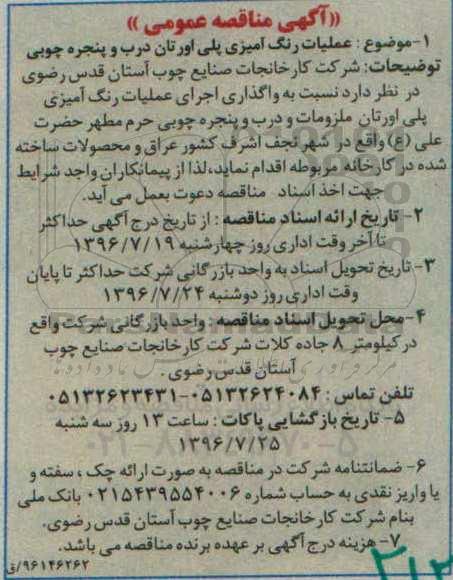 «آگهی مناقصه عمومی»
۱-موضوع : عملیات رنگ آمیزی پلی اورتان درب و پنجره چوبی
توضیحات: شرکت کارخانجات صنایع چوب آستان قدس رضوی
در نظر دارد نسبت به واگذاری اجرای عملیات رنگ آمیزی
پلی اورتان ملزومات و درب و پنجره چوبی حرم مطهر حضرت
علی (ع) واقع در شهر نجف اشرف کشور عراق و محصولات ساخته
شده در کارخانه مربوطه اقدام نماید،لذا از پیمانکاران واجد شرایط
جهت اخذ اسناد مناقصه دعوت بعمل می آید.
۲- تاریخ ارائه اسناد مناقصه : از تاریخ درج آگهی حداکثر
تا آخر وقت اداری روز چهارشنبه ۱۳۹۶/۷/۱۹
۳-تاریخ تحویل اسناد به واحد بازرگانی شرکت حداکثر تا پایان
وقت اداری روز دوشنبه ۱۳۹۶/۷/۲۴
۴-محل تحویل اسناد مناقصه : واحد بازرگانی شرکت واقع
در کیلومتر ۸ جاده کلات شرکت کارخانجات صنایع چوب
آستان قدس رضوی.
تلفن تماس : ۰۵۱۳۲۶۲۴۰۸۴-۰۵۱۳۲۶۲۳۴۳۱
۵- تاریخ بازگشایی پاکات : ساعت ۱۳ روز سه شنبه
۱۳۹۶/۷/۲۵
۶- ضمانتنامه شرکت در مناقصه به صورت ارائه چک ، سفته و
یا واریز نقدی به حساب شماره ۰۲۱۵۴۳۹۵۵۴۰۰۶ بانک ملی
بنام شرکت کارخانجات صنایع چوب آستان قدس رضوی.
۷- هزینه درج آگهی بر عهده برنده مناقصه می باشد.
۹۶۱۴۶۲۶۲/ق